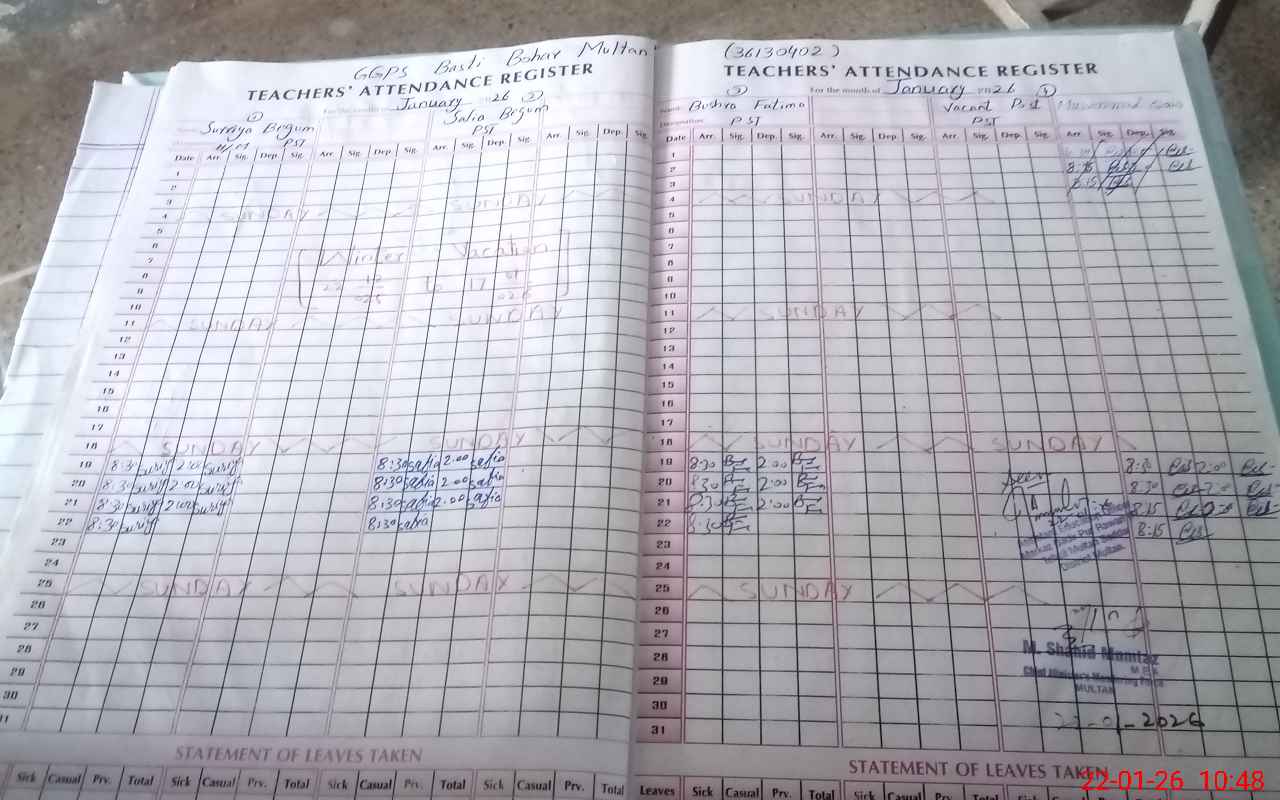 GGPS Basti Bohar Multan
TEACHERS' ATTENDANCE REGISTER
For the month of January 2026
① ②
Surriya Begum Safia Begum
PST PST
Date Arr. Sig. Dep. Sig. Arr. Sig. Dep. Sig. Arr. Sig. Dep. Sig. Arr. Sig. Dep. Sig.
1
2
3
4 SUNDAY SUNDAY
5
6
7 Winter Vacation
8
9 22 12 025 to 17 01 026
10
11 SUNDAY SUNDAY
12
13
14
15
16
17
18 SUNDAY SUNDAY
19 8:30 2:00 8:30 safia 2:00 safia
20 8:30 2:00 8:30 safia 2:00 safia
21 8:30 2:00 8:30 safia 2:00 safia
22 8:30 8:30 safia
23
24
25 SUNDAY SUNDAY
26
27
28
29
30
31
STATEMENT OF LEAVES TAKEN
Sick Casual Prv. Total Sick Casual Prv. Total Sick Casual Prv. Total Sick Casual Prv. Total
(36130402)
TEACHERS' ATTENDANCE REGISTER
For the month of January 2026
③ ④
Name Bushra Fatima Vacant Post Muhammad
Designation PST PST
Date Arr. Sig. Dep. Sig. Arr. Sig. Dep. Sig. Arr. Sig. Dep. Sig. Arr. Sig. Dep. Sig.
1
2 8:15
3 8:15
4 SUNDAY
5
6
7
8
9
10
11 SUNDAY
12
13
14
15
16
17
18 SUNDAY SUNDAY
19 8:30 BF 2:00 BF 8:30 2:00
20 8:30 BF 2:00 BF Seen 8:30 2:00
21 8:30 BF 2:00 BF 8:15
22 8:30 BF 8:15
23
24
25 SUNDAY
26
27
28 M. Shahid Mumtaz
29 Chief Minister's Monitoring Force
MULTAN
30
31 22-01-2026
STATEMENT OF LEAVES TAKEN
Leaves Sick Casual Prv. Total Sick Casual Prv. Total Sick Casual Prv.
22-01-26 10:48